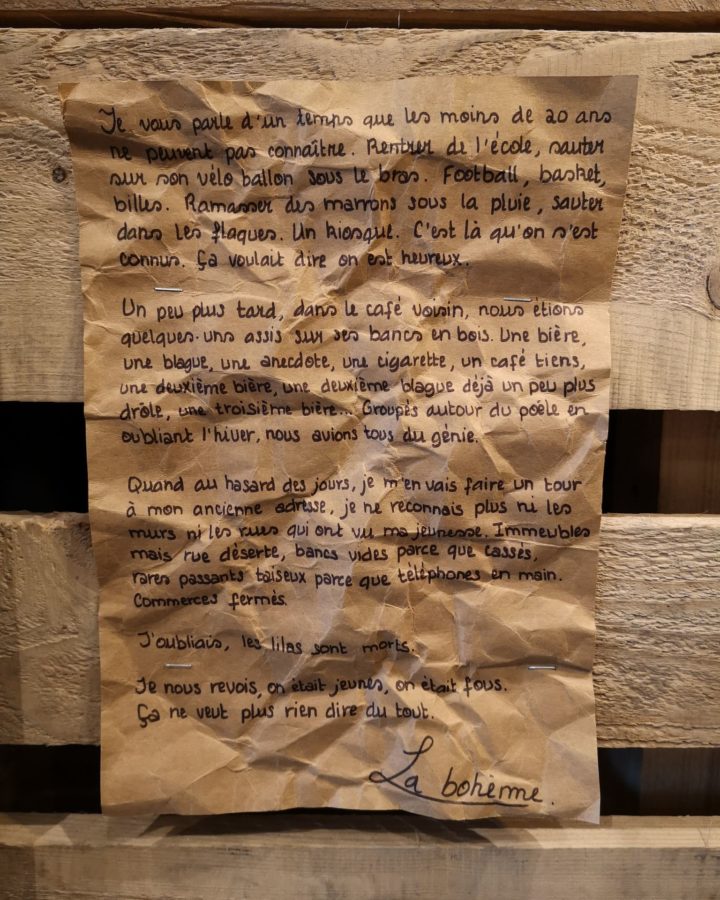 Je vous parle d'un temps que les moins de 20 ans
ne peuvent pas connaître. Rentrer de l'école, sauter
sur son vélo ballon sous le bras. Football, basket,
billes. Ramasser des marrons sous la pluie, sauter
dans les flaques. Un kiosque. C'est là qu'on s'est
connus. Ça voulait dire on est heureux.
Un peu plus tard, dans le café voisin, nous étions
quelques-uns assis sur ses bancs en bois. Une bière,
une blague, une anecdote, une cigarette, un café tiens,
une deuxième bière, une deuxième blague déjà un peu plus
drôle, une troisième bière... Groupés autour du poêle en
oubliant l'hiver, nous avions tous du génie.
Quand au hasard des jours, je m'en vais faire un tour
à mon ancienne adresse, je ne reconnais plus ni les
murs ni les rues qui ont vu ma jeunesse. Immeubles
mais rue déserte, bancs vides parce que cassés,
rares passants taiseux parce que téléphones en main.
Commerces fermés.
J'oubliais, les lilas sont morts.
Je nous revois, on était jeunes, on était fous.
Ça ne veut plus rien dire du tout.
La bohème.